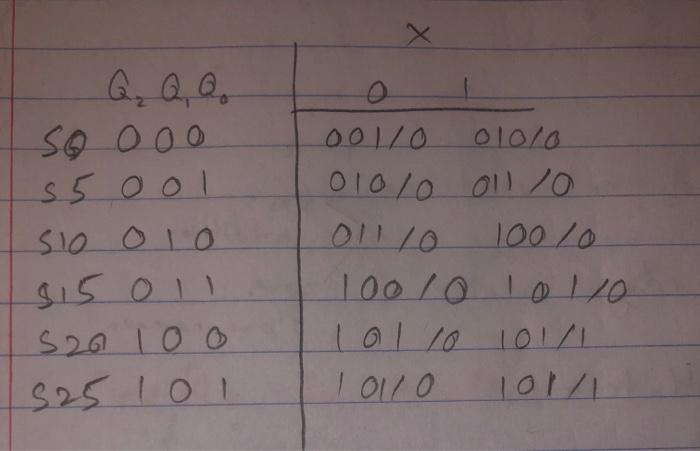 X
Q₂ Q₁ Q₀ 0 1
S0 000 001/0 010/0
S5 001 010/0 011/0
S10 010 011/0 100/0
S15 011 100/0 101/0
S20 100 101/0 101/1
S25 101 101/0 101/1